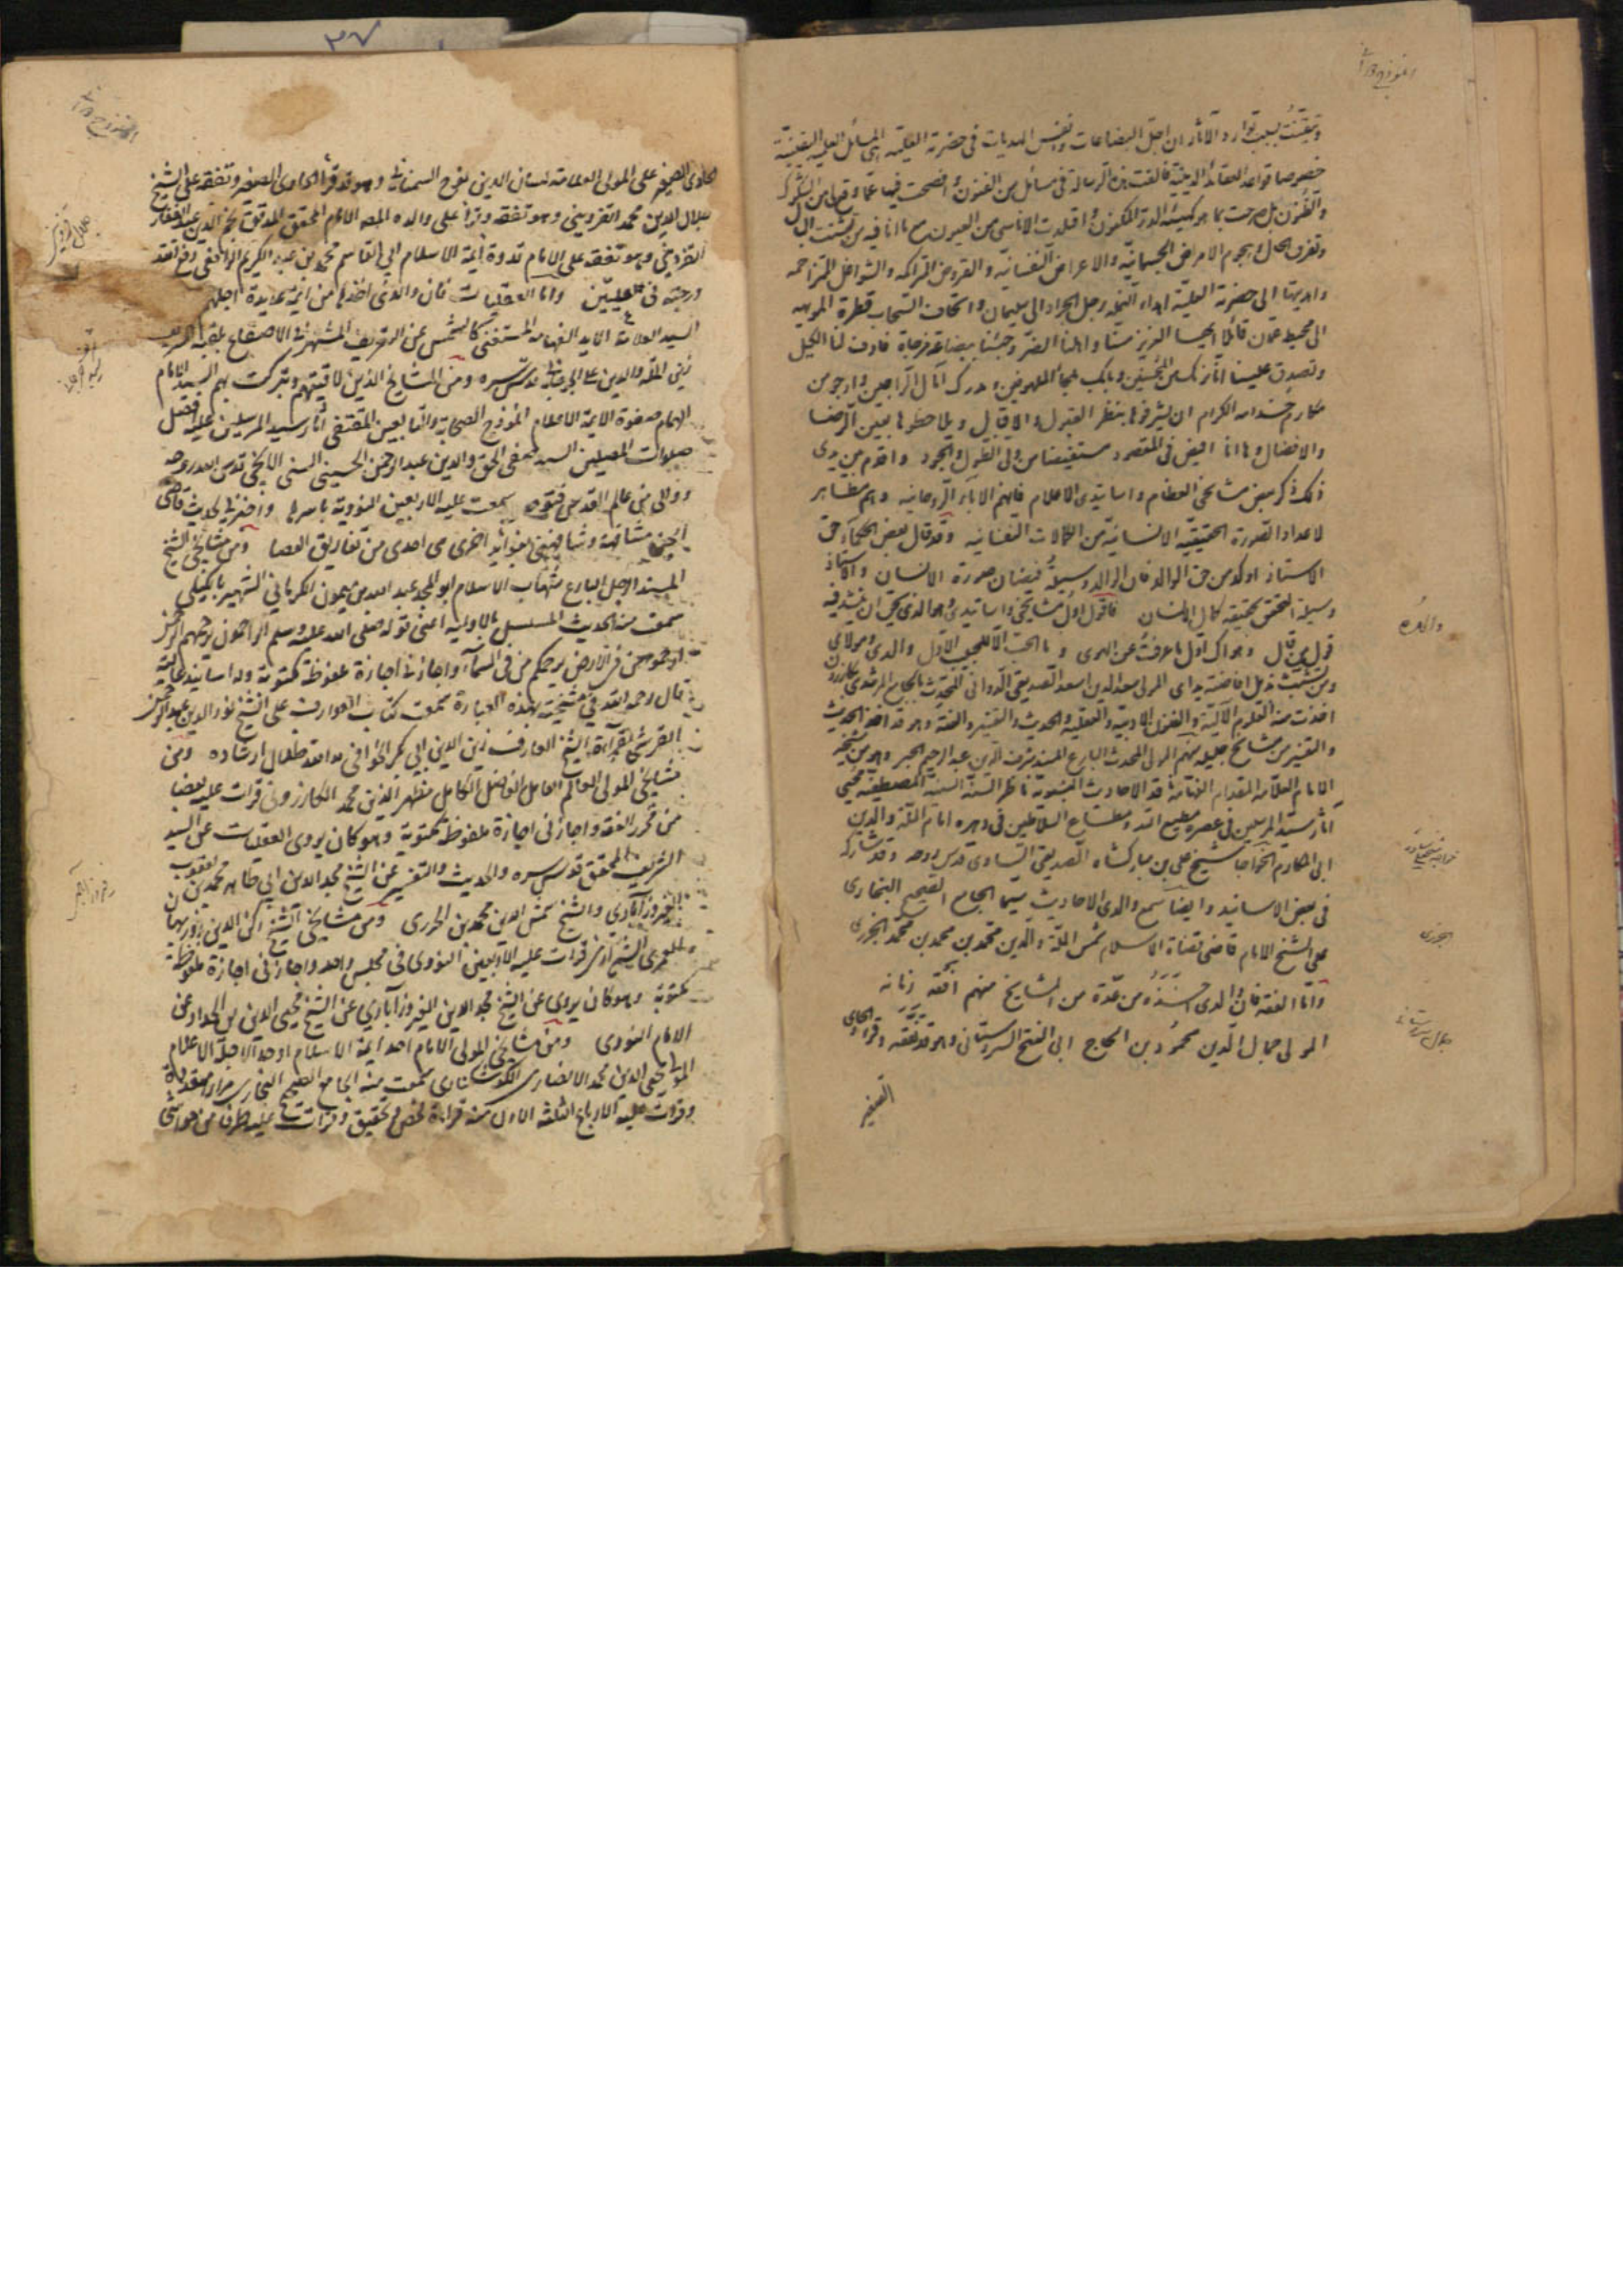 وتيقنت بسبب توارد الآثار ان اجل البضاعات وانفس الهديات في حضرته العلية هي المسائل العلمية اليقينية
خصوصا قواعد العقائد الدينية فالفت هذه الرسالة في مسائل من الفنون وافصحت فيها عما وقع من الشكوك
والظنون بل صرحت بما هو كهيئة الدر المكنون واقلدت الاناسي من العيون مع ما انا فيه من تشتت البال
وتفرق الحال وهجوم الامراض الجسمانية والاعراض النفسانية والقروض المتراكمة والشواغل المتزاحمة
واهديتها الى حضرته العلية اهداء النملة رجل الجراد الى سليمان واتحاف السحاب قطرة
الى محيط عمان قائلا ايها العزيز مسنا واهلنا الضر وجئنا ببضاعة مزجاة فاوف لنا الكيل
وتصدق علينا انا نراك من المحسنين وبابك ملجأ الملهوفين ومدرك آمال الراجين وارجو من
مكارم خدامه الكرام ان يشرفوها بنظر القبول والاقبال ويلاحظوها بعين الرضا
والافضال وها انا افيض في المقصود مستفيضا من ولي الطول والجود واقدم بين يدى
ذلك ذكر بعض مشايخي العظام واساتيذى الاعلام فانهم الاباء الروحانيه وهم مظاهر
لاعداد الصورة الحقيقية الانسانية من الكمالات النفسانيه وقد قال بعض الحكماء حق
الاستاذ اوكد من حق الوالد فان الوالد وسيلة فيضان صورة الانسان والاستاذ
وسيلة التحقق بحقيقة كمال الانسان فاقول اول مشايخي واساتيذى وهو الذى يحق ان ينشد فيه
قول من قال وهواك اول ما عرفت من الهوى وما الحب الا للحبيب الاول والدى ومولاى
ومن تشبثت بذيل افاضته يداى المولى سعد الدين اسعد الصديقي الدواني المحدث بالجامع المرشدى بكازرون
اخذت منه العلوم الآلية والفنون الادبية والعقلية والحديث والتفسير والفقه وهو قد اخذ الحديث
والتفسير من مشايخ جليلة منهم المولى المحدث البارع المسند شرف الدين عبد الرحيم الجبر وهو من شيخه
الامام العلامة المقدام الفهامة نقد الاحاديث النبوية ناظر السنة السنية المصطفية محيي
آثار سيد المرسلين في عصره مطيع الله ومطاع السلاطين في دهره امام الملة والدين
ابى المكارم الخواجا شيخ علي بن مباركشاه الصديقي الساوى قدس روحه وقد شاركه
في بعض الاسانيد وايضا سمع والدى الاحاديث سيما الجامع الصحيح البخارى
على الشيخ الامام قاضي قضاة الاسلام شمس الملة والدين محمد بن محمد بن محمد الجزرى
واما الفقه فان والدى اخذه من عدة من المشايخ منهم افقه زمانه
المولى جمال الدين محمود بن الحاج ابى الفتح السروستاني وهو قد تفقه وقرأ الحاوى
الصغير
والده
الجزرى
جمال سروستانى
الحاوى الصغير على المولى العلامة لسان الدين نوح السمناني وهو قد قرأ الحاوى الصغير وتفقه على الشيخ
جلال الدين محمد القزويني وهو تفقه وقرأ على والده المصنف الامام المحقق المدقق نجم الدين عبد الغفار
القزويني وهو تفقه على الامام قدوة ائمة الاسلام ابى القاسم محمد بن عبد الكريم الرافعي رفع الله
درجته في عليين واما العقليات فان والدى اخذها من ائمة عديدة اجلهم
السيد العلامة الايد الفهامة المستغني كالشمس عن التعريف المشتهر في الاصقاع بلقبه الشريف
زين الملة والدين علي الجرجاني قدس سره ومن المشايخ الذين لاقيتهم وتبركت بهم السيد الامام
الهمام صفوة الايمة الاعلام انموذج الصحابة والتابعين المقتفي آثار سيد المرسلين عليه افضل
صلوات المصلين السيد صفي الحق والدين عبد الرحمن الحسيني الحسني الايجي قدس الله روحه
ووالى من عالم القدس فتوحه سمعت عليه الاربعين النووية باسرها واخبرني بحديث قاضي
الجن مشافهة وشافهني بفوائد اخرى هي اجدى من تفاريق العصا ومن مشايخي الشيخ
المسند الاجل البارع شهاب الاسلام ابو المجد عبد الله بن ميمون الكرماني الشهير بالجيلي
سمعت منه الحديث المسلسل بالاولية اعني قوله صلى الله عليه وسلم الراحمون يرحمهم الرحمن
ارحموا من في الارض يرحمكم من في السماء واجازني اجازة ملفوظة مكتوبة وله اسانيد عالية
قال رحمه الله في مشيخته بهذه العبارة سمعت كتاب العوارف على الشيخ نور الدين عبد الرحمن
القرشي بقراءة الشيخ العارف زين الدين ابي بكر الخوافي مد الله ظلال ارشاده ومن
مشايخي المولى العالم العامل الفاضل الكامل مظهر الدين محمد الكازروني قرات عليه بعضا
من محرر الفقه واجازني اجازة ملفوظة مكتوبة وهو كان يروى العقليات عن السيد
الشريف المحقق قدس سره والحديث والتفسير عن الشيخ مجد الدين ابي طاهر محمد بن يعقوب
الفيروزآبادى والشيخ شمس الدين محمد بن الجزرى ومن مشايخي الشيخ ركن الدين روزبهان
العمرى الشيرازى قرات عليه الاربعين النووى في مجلس واحد واجازني اجازة ملفوظة
مكتوبة وهو كان يروى عن الشيخ مجد الدين الفيروزآبادى عن الشيخ محيى الدين بن الحداد عن
الامام النووى ومن مشايخي المولى الامام احد ايمة الاسلام اوحد الاجلة الاعلام
المولى محيى الدين محمد الانصارى الكوشكنارى سمعت منه الجامع الصحيح البخارى مرارا متعددة
وقرات عليه الارباع الثلثة الاول منه قراءة فحص وتحقيق وقرات عليه طرفا من حواشي
جلال قزوينى
٣٧